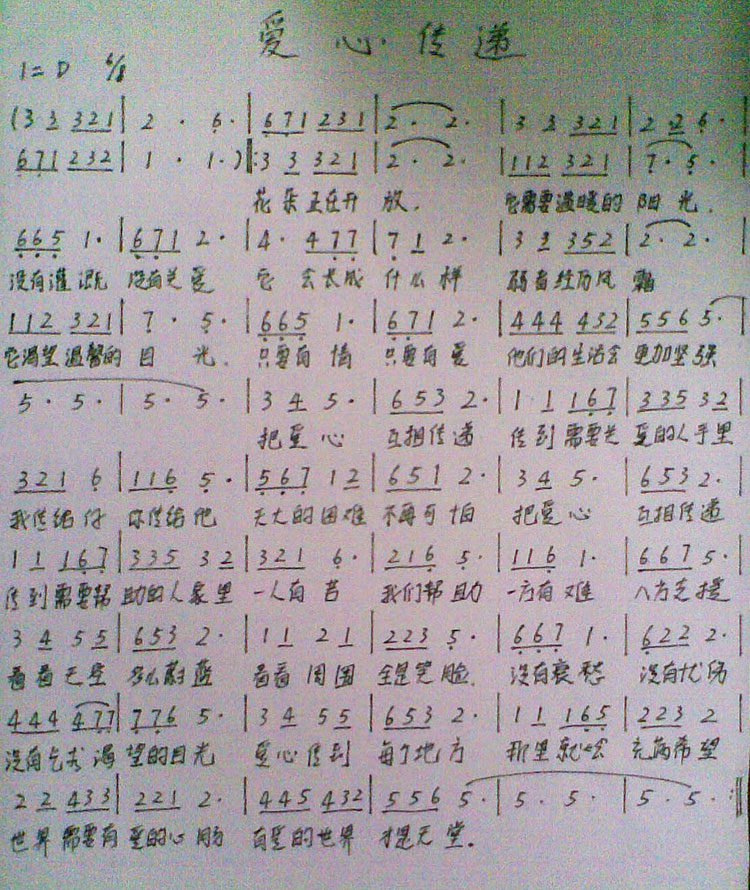 爱心传递
1=D 6/8
(3 3 321 | 2 · 6 · | 671 231 | 2 · 2 · | 3 3 321 | 2 2 6 ·
671 232 | 1 · 1 ·) ‖: 3 3 321 | 2 · 2 · | 112 321 | 7 · 5 ·
花朵正在开放. 它需要温暖的阳光.
665 1 · | 671 2 · | 4 · 477 | 7 1 2 · | 3 3 352 | 2 · 2 ·
没有灌溉 没有关爱 它会长成什么样 弱者经历风霜
112 321 | 7 · 5 · | 665 1 · | 671 2 · | 444 432 | 556 5 ·
它渴望温馨的目光. 只要有情 只要有爱 他们的生活会更加坚强
5 · 5 · | 5 · 5 · | 3 4 5 · | 653 2 · | 1 1 167 | 335 32
把爱心 互相传递 传到需要关爱的人手里
321 6 | 116 5 · | 567 12 | 651 2 · | 3 4 5 · | 653 2 ·
我传给你 你传给他 天大的困难不再可怕 把爱心 互相传递
1 1 167 | 335 32 | 321 6 · | 216 5 · | 116 1 · | 667 5 ·
传到需要帮助的人家里 一人有苦 我们帮助 一方有难 八方支援
3 4 5 5 | 653 2 · | 1 1 2 1 | 223 5 · | 667 1 · | 622 2 ·
看看天空 多么蔚蓝 看看周围 全是笑脸. 没有哀愁 没有忧伤
444 477 | 776 5 · | 3 4 5 5 | 653 2 · | 1 1 165 | 223 2
没有乞求渴望的目光 爱心传到 每个地方 那里就会充满希望
2 2 433 | 221 2 · | 445 432 | 556 5 · | 5 · 5 · | 5 · 5 · :‖
世界需要有爱的心肠 有爱的世界 才是天堂.